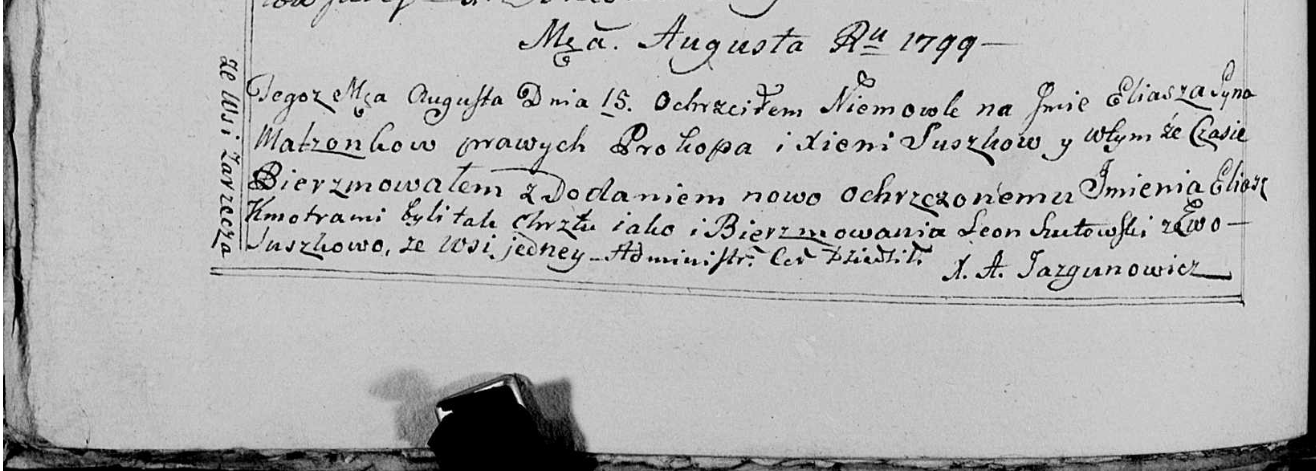 Mca. Augusta Ru 1799 —
ze Wsi Zarzecza
Tegoz Mca Augusta Dnia 15. Ochrzciłem Niemowle na Jmie Eliasza Syna
Małzonkow prawych Prokopa i Xieni Suszkow y wtym że Czasie
Bierzmowałem z Dodaniem nowo ochrzczonemu Jmienia Eliasz
Kmotrami byli tak chrztu iako i Bierzmowania Leon z Ewo —
Suszkowo, ze Wsi jedney — Administr. Cer
X. A. Jazgunowicz